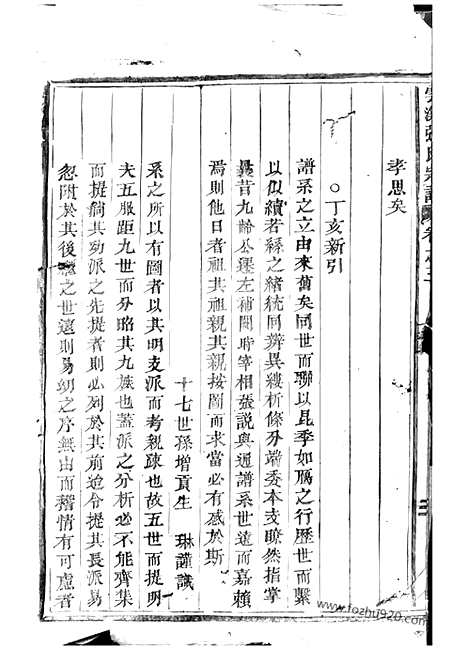 孝思矣
○丁亥新引
譜系之立由來舊矣同世而聯以昆季如鴈之行歷世而繫
以似續若絲之緒統同辨異縷析條分端委本支瞭然指掌
曩昔九齡公繹左補闕時宰相張說與通譜系世遠而嘉賴
焉則他日者祖其祖親其親按圖而求當必有感於斯
十七世孫增貢生 琳謹識
系之所以有圖者以其明支派而考親疎也故五世而提明
夫五服距九世而分昭其九族也蓋派之分析必不能齊集
而提倘其幼派之先提者則必列於其前迨令提其長派易
忽附於其後歷之世遠則易幼之序無由而稽情有可慮者
www.fozhu920.com